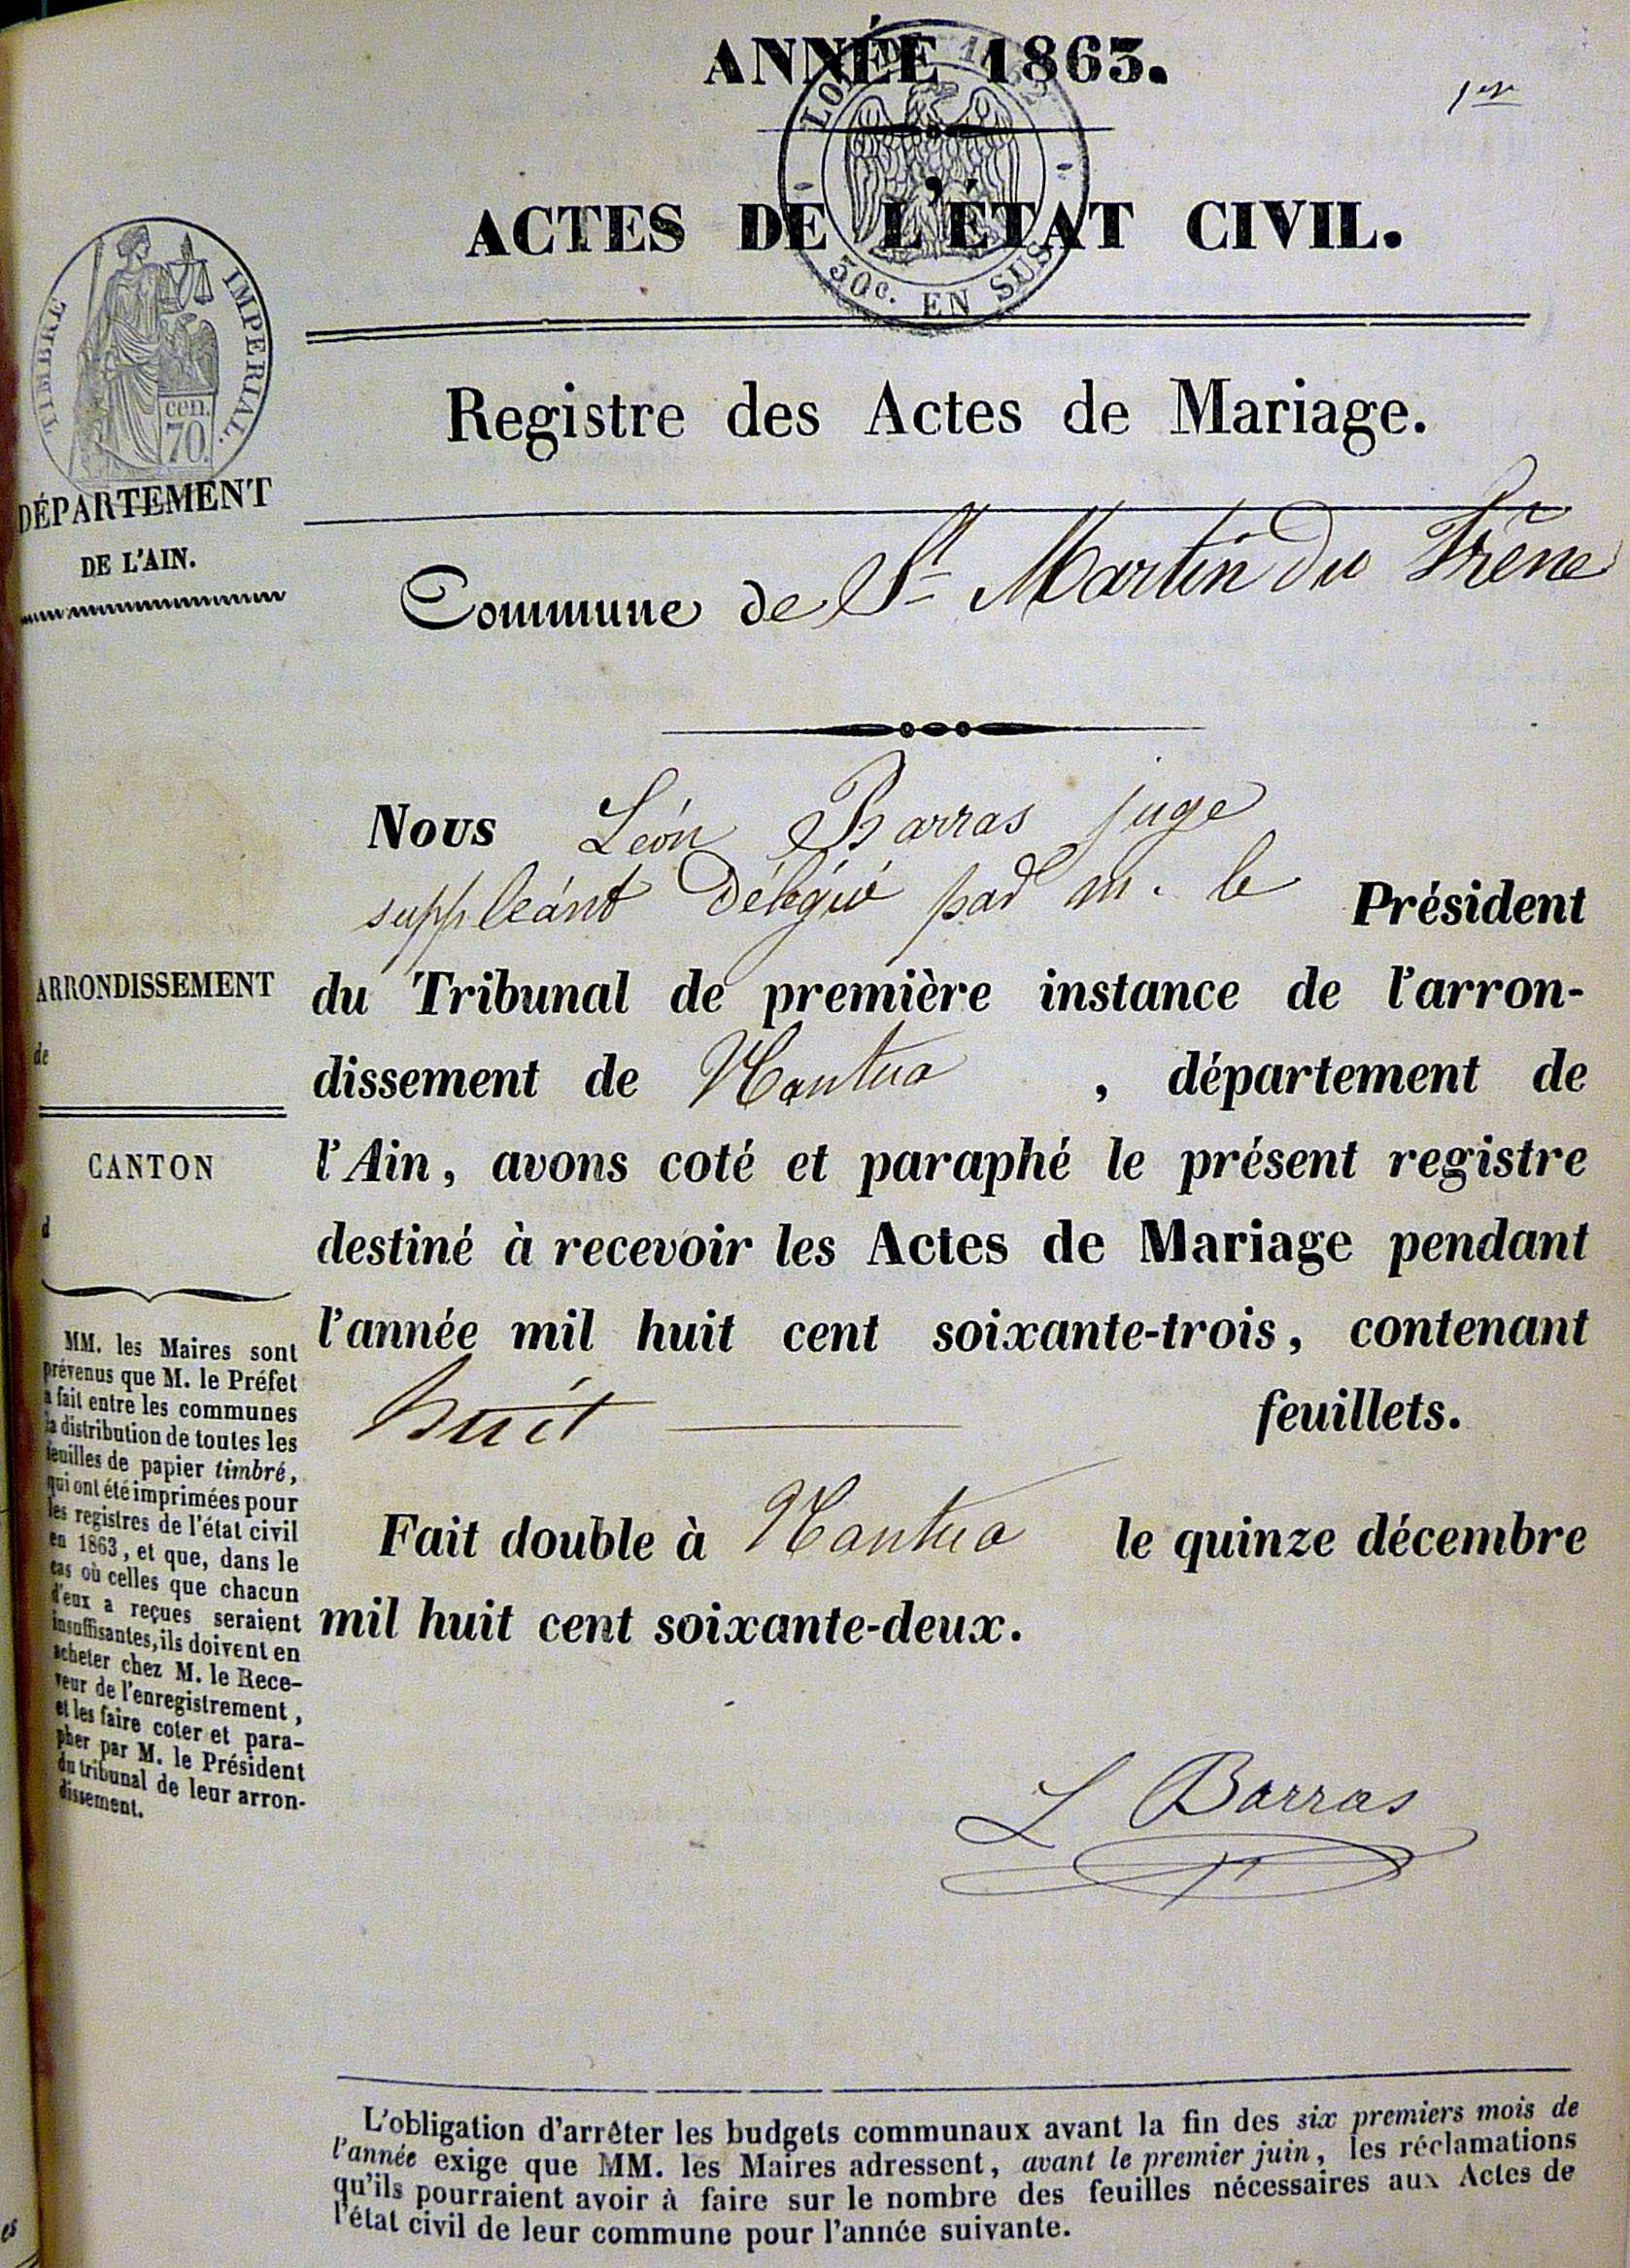 ANNÉE 1863.
1er
LOI
50c. EN SUS
ACTES DE L'ÉTAT CIVIL.
TIMBRE IMPERIAL.
cen.
70.
DÉPARTEMENT
DE L'AIN.
Registre des Actes de Mariage.
Commune de St Martin du Frêne
Nous Léon Barras juge
suppléant délégué par m. le Président
du Tribunal de première instance de l'arron-
dissement de Nantua, département de
l'Ain, avons coté et paraphé le présent registre
destiné à recevoir les Actes de Mariage pendant
l'année mil huit cent soixante-trois, contenant
huit feuillets.
Fait double à Nantua le quinze décembre
mil huit cent soixante-deux.
L Barras
ARRONDISSEMENT
de
CANTON
d
MM. les Maires sont
prévenus que M. le Préfet
a fait entre les communes
la distribution de toutes les
feuilles de papier timbré,
qui ont été imprimées pour
les registres de l'état civil
en 1863, et que, dans le
cas où celles que chacun
d'eux a reçues seraient
insuffisantes, ils doivent en
acheter chez M. le Rece-
veur de l'enregistrement,
et les faire coter et para-
pher par M. le Président
du tribunal de leur arron-
dissement.
L'obligation d'arrêter les budgets communaux avant la fin des six premiers mois de
l'année exige que MM. les Maires adressent, avant le premier juin, les réclamations
qu'ils pourraient avoir à faire sur le nombre des feuilles nécessaires aux Actes de
l'état civil de leur commune pour l'année suivante.